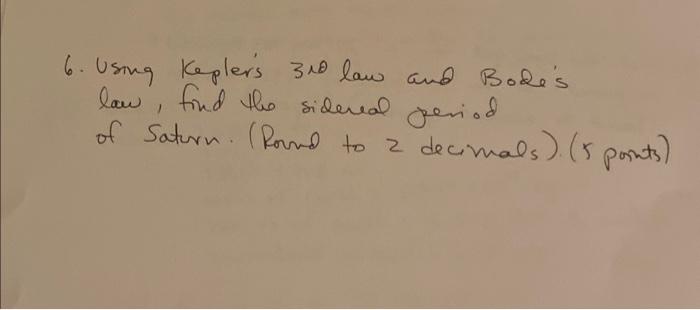 6. Using Kepler's 3rd law and Bode's
law, find the sidereal period
of Saturn. (Round to 2 decimals). (5 points)